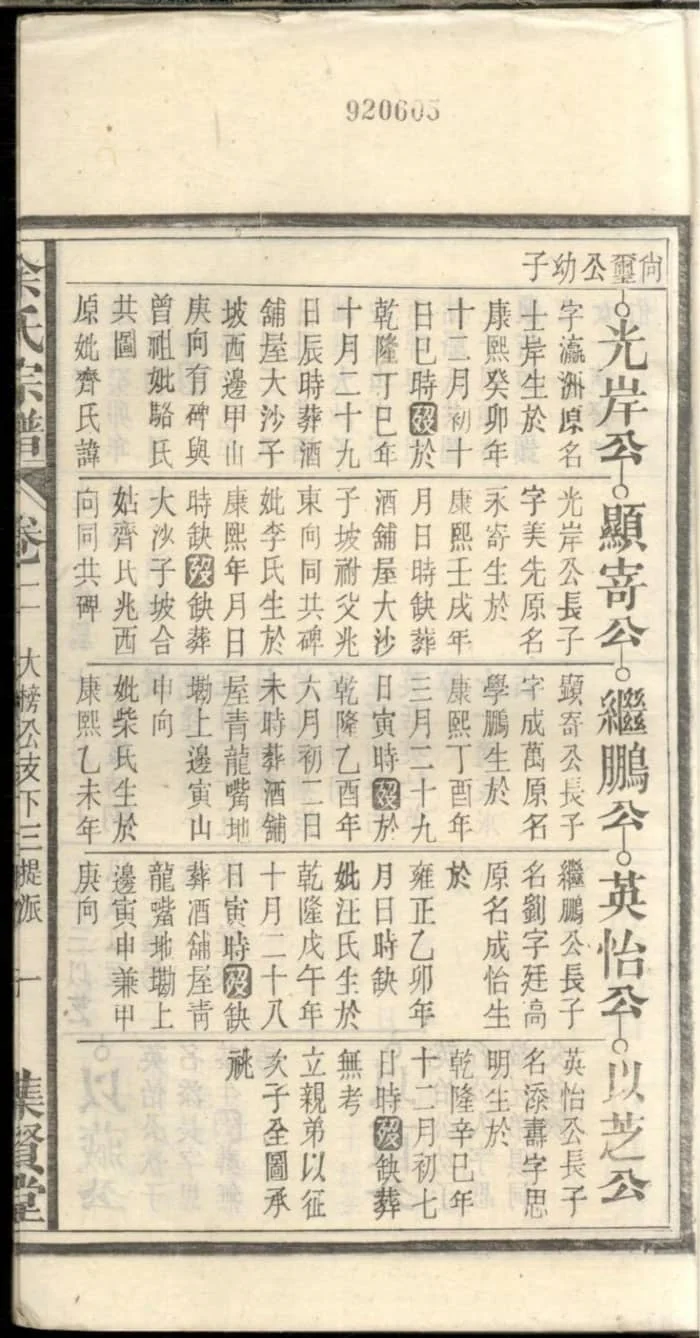 920605
尙璽公幼子
光岸公
字瀛洲原名
士岸生於
康熙癸卯年
十二月初十
日巳時歿於
乾隆丁巳年
十月二十九
日辰時葬酒
舖屋大沙子
坡西邊甲山
庚向有碑與
曾祖妣駱氏
共圖
原妣齊氏諱
顯寄公
光岸公長子
字美先原名
永寄生於
康熙壬戌年
月日時缺葬
酒舖屋大沙
子坡祔父兆
東向同共碑
妣李氏生於
康熙年月日
時缺歿缺葬
大沙子坡合
姑齊氏兆西
向同共碑
繼鵬公
顯寄公長子
字成萬原名
學鵬生於
康熙丁酉年
三月二十九
日寅時歿於
乾隆乙酉年
六月初二日
未時葬酒舖
屋青龍嘴地
塝上邊寅山
申向
妣柴氏生於
康熙乙未年
英怡公
繼鵬公長子
名劉字廷高
原名成怡生
於
雍正乙卯年
月日時缺
妣汪氏生於
乾隆戊午年
十月二十八
日寅時歿缺
葬酒舖屋靑
龍嘴地塝上
邊寅申兼甲
庚向
以芝公
英怡公長子
名添壽字思
明生於
乾隆辛巳年
十二月初七
日時歿缺葬
無考
立親弟以征
次子全圖承
祧
余氏宗譜
卷二
大榜公支下三提派
一
集賢堂